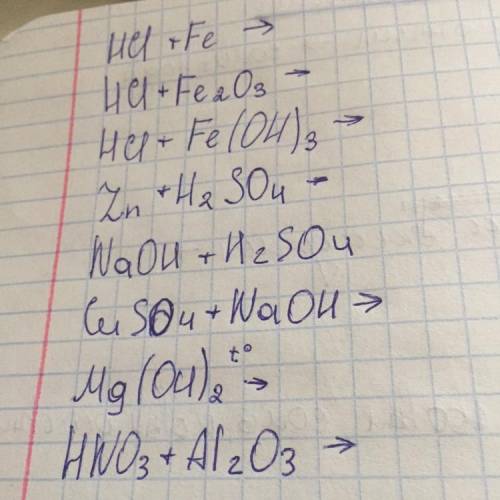 HCl + Fe →
HCl + Fe2O3 →
HCl + Fe(OH)3 →
Zn + H2SO4 →
NaOH + H2SO4
CuSO4 + NaOH →
Mg(OH)2 t° →
HNO3 + Al2O3 →